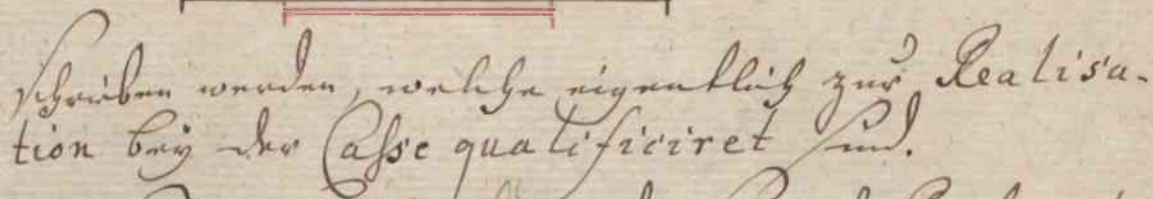 schrieben werden, welche eigentlich zur Realisa-
tion bey der Casse qualificiret sind.